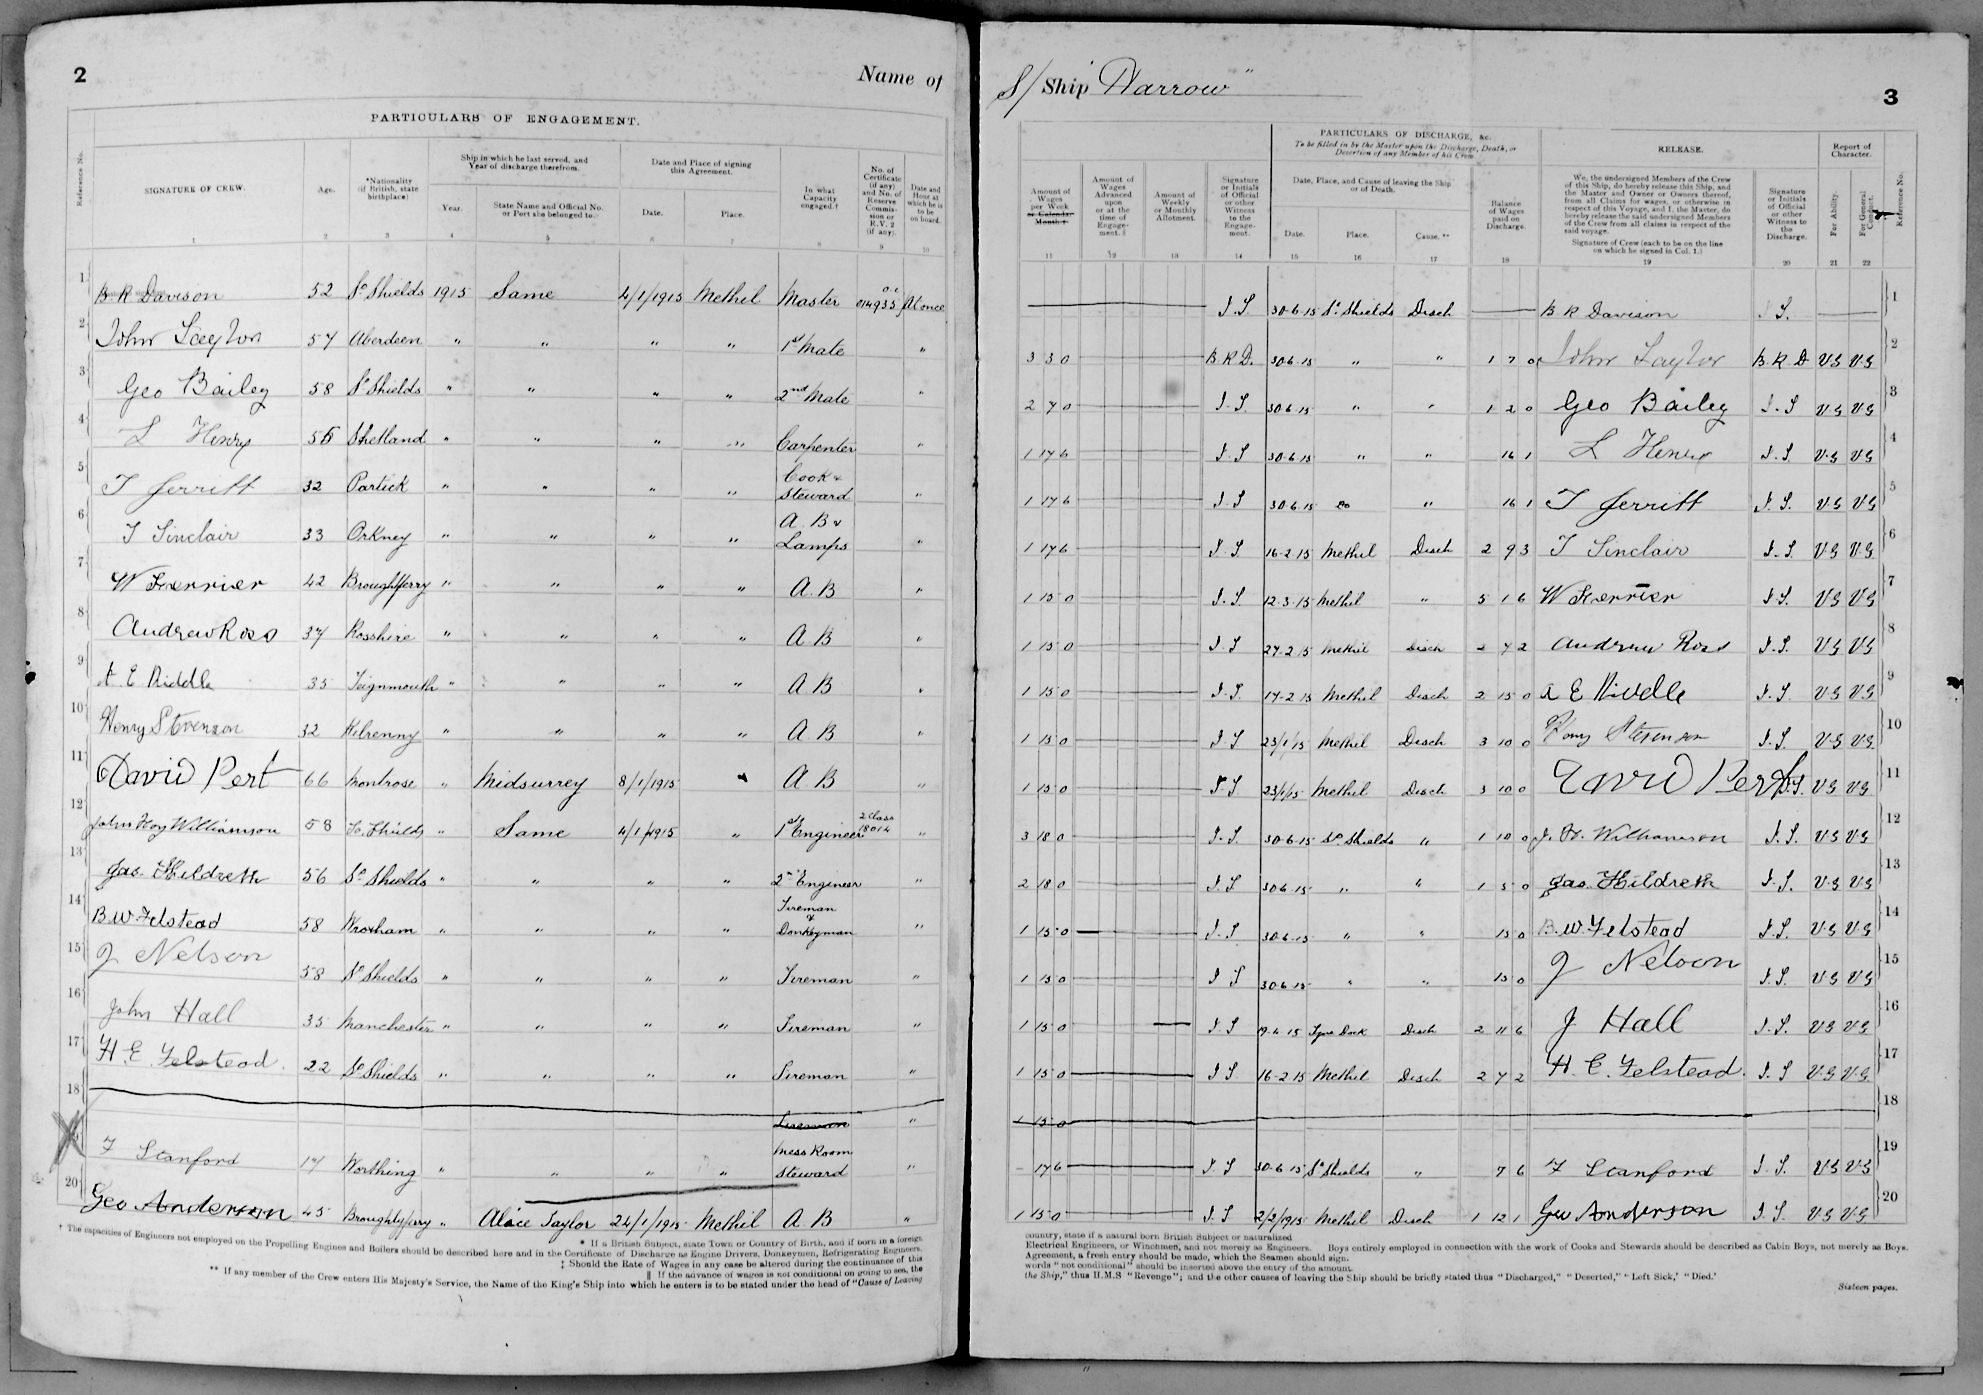 2
Name of
PARTICULARS OF ENGAGEMENT.
Reference No.
SIGNATURE OF CREW.
Age.
*Nationality (if British, state birthplace)
Ship in which he last served, and Year of discharge therefrom.
Year.
State Name and Official No. or Port she belonged to.
Date and Place of signing this Agreement.
Date.
Place.
In what Capacity engaged.†
No. of Certificate (if any) and No. of Reserve Commission or R.V. 2 (if any).
Date and Hour at which he is to be on board.
1 2 3 4 5 6 7 8 9 10
1 B R Davison 52 So Shields 1915 Same 4/1/1915 Methil Master 014935 At once
2 John Taylor 57 Aberdeen " " " " 1st Mate "
3 Geo Bailey 58 So Shields " " " " 2nd Mate "
4 L Henry Shetland " " " " Carpenter "
5 T Jerritt 32 Partick " " " " Cook & Steward "
6 T Sinclair 33 Orkney " " " " A. B & Lamps "
7 W Ferrier 42 Broughtyferry " " " " A. B "
8 Andrew Ross 37 Rosshire " " " " A B "
9 A E Riddle 35 Teignmouth " " " " A B "
10 Henry Stevenson 32 Kilrenny " " " " A B "
11 David Pert 66 Montrose " Midsurrey 8/1/1915 " A B "
12 John Hoy Williamson 58 So. Shields " Same 4/1/1915 " 1st Engineer 2 Class 18014 "
13 Jas. Hildreth 56 So Shields " " " " 2nd Engineer "
14 B.W. Felstead 58 Wroxham " " " " Fireman & Donkeyman "
15 J Nelson 58 So Shields " " " " Fireman "
16 John Hall 35 Manchester " " " " Fireman "
17 H. E. Felstead. 22 So Shields " " " " Fireman "
18 Fireman "
F Stanford 17 Worthing " " " " Mess Room Steward "
20 Geo Anderson 45 Broughtyferry " Alice Taylor 24/1/1915 Methil A. B "
* If a British Subject, state Town or Country of Birth, and if born in a foreign
† The capacities of Engineers not employed on the Propelling Engines and Boilers should be described here and in the Certificate of Discharge as Engine Drivers, Donkeymen, Refrigerating Engineers,
‡ Should the Rate of Wages in any case be altered during the continuance of this
|| If the advance of wages is not conditional on going to sea, the
** If any member of the Crew enters His Majesty's Service, the Name of the King's Ship into which he enters is to be stated under the head of "Cause of Leaving
S/ Ship "Harrow"
3
Amount of Wages per Week or Calendar Month.‡
Amount of Wages Advanced upon or at the time of Engagement.||
Amount of Weekly or Monthly Allotment.
Signature or Initials of Official or other Witness to the Engagement.
PARTICULARS OF DISCHARGE, &c.
To be filled in by the Master upon the Discharge, Death, or Desertion of any Member of his Crew
Date, Place, and Cause of leaving the Ship or of Death.
Date.
Place.
Cause.**
Balance of Wages paid on Discharge.
RELEASE.
We, the undersigned Members of the Crew of this Ship, do hereby release this Ship, and the Master and Owner or Owners thereof, from all Claims for wages, or otherwise in respect of this Voyage, and I, the Master, do hereby release the said undersigned Members of the Crew from all claims in respect of the said voyage.
Signature of Crew (each to be on the line on which he signed in Col. 1.)
Signature or Initials of Official or other Witness to the Discharge.
Report of Character.
For Ability.
For General Conduct.
Reference No.
11 12 13 14 15 16 17 18 19 20 21 22
J. S. 30-6-15 So. Shields Disch B R Davison J S. 1
3 3 0 B.R.D. 30.6.15 " " 1 7 0 John Taylor B.R.D V.G V.G 2
2 7 0 J. S. 30.6.15 " " 1 2 0 Geo Bailey J. S V.G V.G 3
1 17 6 J. S 30.6.15 " " 16 1 L Henry J. S V.G V.G 4
1 17 6 J. S 30.6.15 Do " 16 1 T Jerritt J. S. V.G V.G 5
1 17 6 J. S 16-2-15 Methil Disch 2 9 3 T Sinclair J. S. V.G V.G 6
1 15 0 J. S. 12.3.15 Methil " 5 1 6 W Ferrier J.S. V.G V.G 7
1 15 0 J. S 27.2.15 Methil Disch 2 7 2 Andrew Ross J. S. V.G V.G 8
1 15 0 J. S. 17-2-15 Methil Disch 2 15 0 A E Riddle J. S. V.G V.G 9
1 15 0 J S 23/1/15 Methil Disch 3 10 0 Henry Stevenson J. S V.G V.G 10
1 15 0 J. S 23/1/15 Methil Disch 3 10 0 David Pert J.S. V.G V.G 11
3 18 0 J. S. 30-6-15 So Shields " 1 10 0 J. H. Williamson J. S. V.G V.G 12
2 18 0 J. S 30.6.15 " " 1 5 0 Jas. Hildreth J. S. V.G V.G 13
1 15 0 J. S 30.6.15 " " 15 0 B.W. Felstead J. S. V.G V.G 14
1 15 0 J S 30.6.15 " " 15 0 J Nelson J. S. V.G V.G 15
1 15 0 J. S 19.4.15 Tyne Dock Disch 2 11 6 J Hall J. S. V.G V.G 16
1 15 0 J S 16-2-15 Methil Disch 2 7 2 H. E. Felstead. J. S V.G V.G 17
1 15 0 18
- 17 6 J. S 30-6-15 So Shields " 7 6 F Stanford J. S V.G V.G 19
1 15 0 J. S 2/2/1915 Methil Disch 1 12 1 Geo Anderson J. S. V.G V.G 20
country, state if a natural born British Subject or naturalized
Electrical Engineers, or Winchmen, and not merely as Engineers. Boys entirely employed in connection with the work of Cooks and Stewards should be described as Cabin Boys, not merely as Boys.
Agreement, a fresh entry should be made, which the Seamen should sign.
words "not conditional" should be inserted above the entry of the amount.
the Ship," thus H.M.S "Revenge"; and the other causes of leaving the Ship should be briefly stated thus "Discharged," "Deserted," "Left Sick,' "Died.'
Sixteen pages.